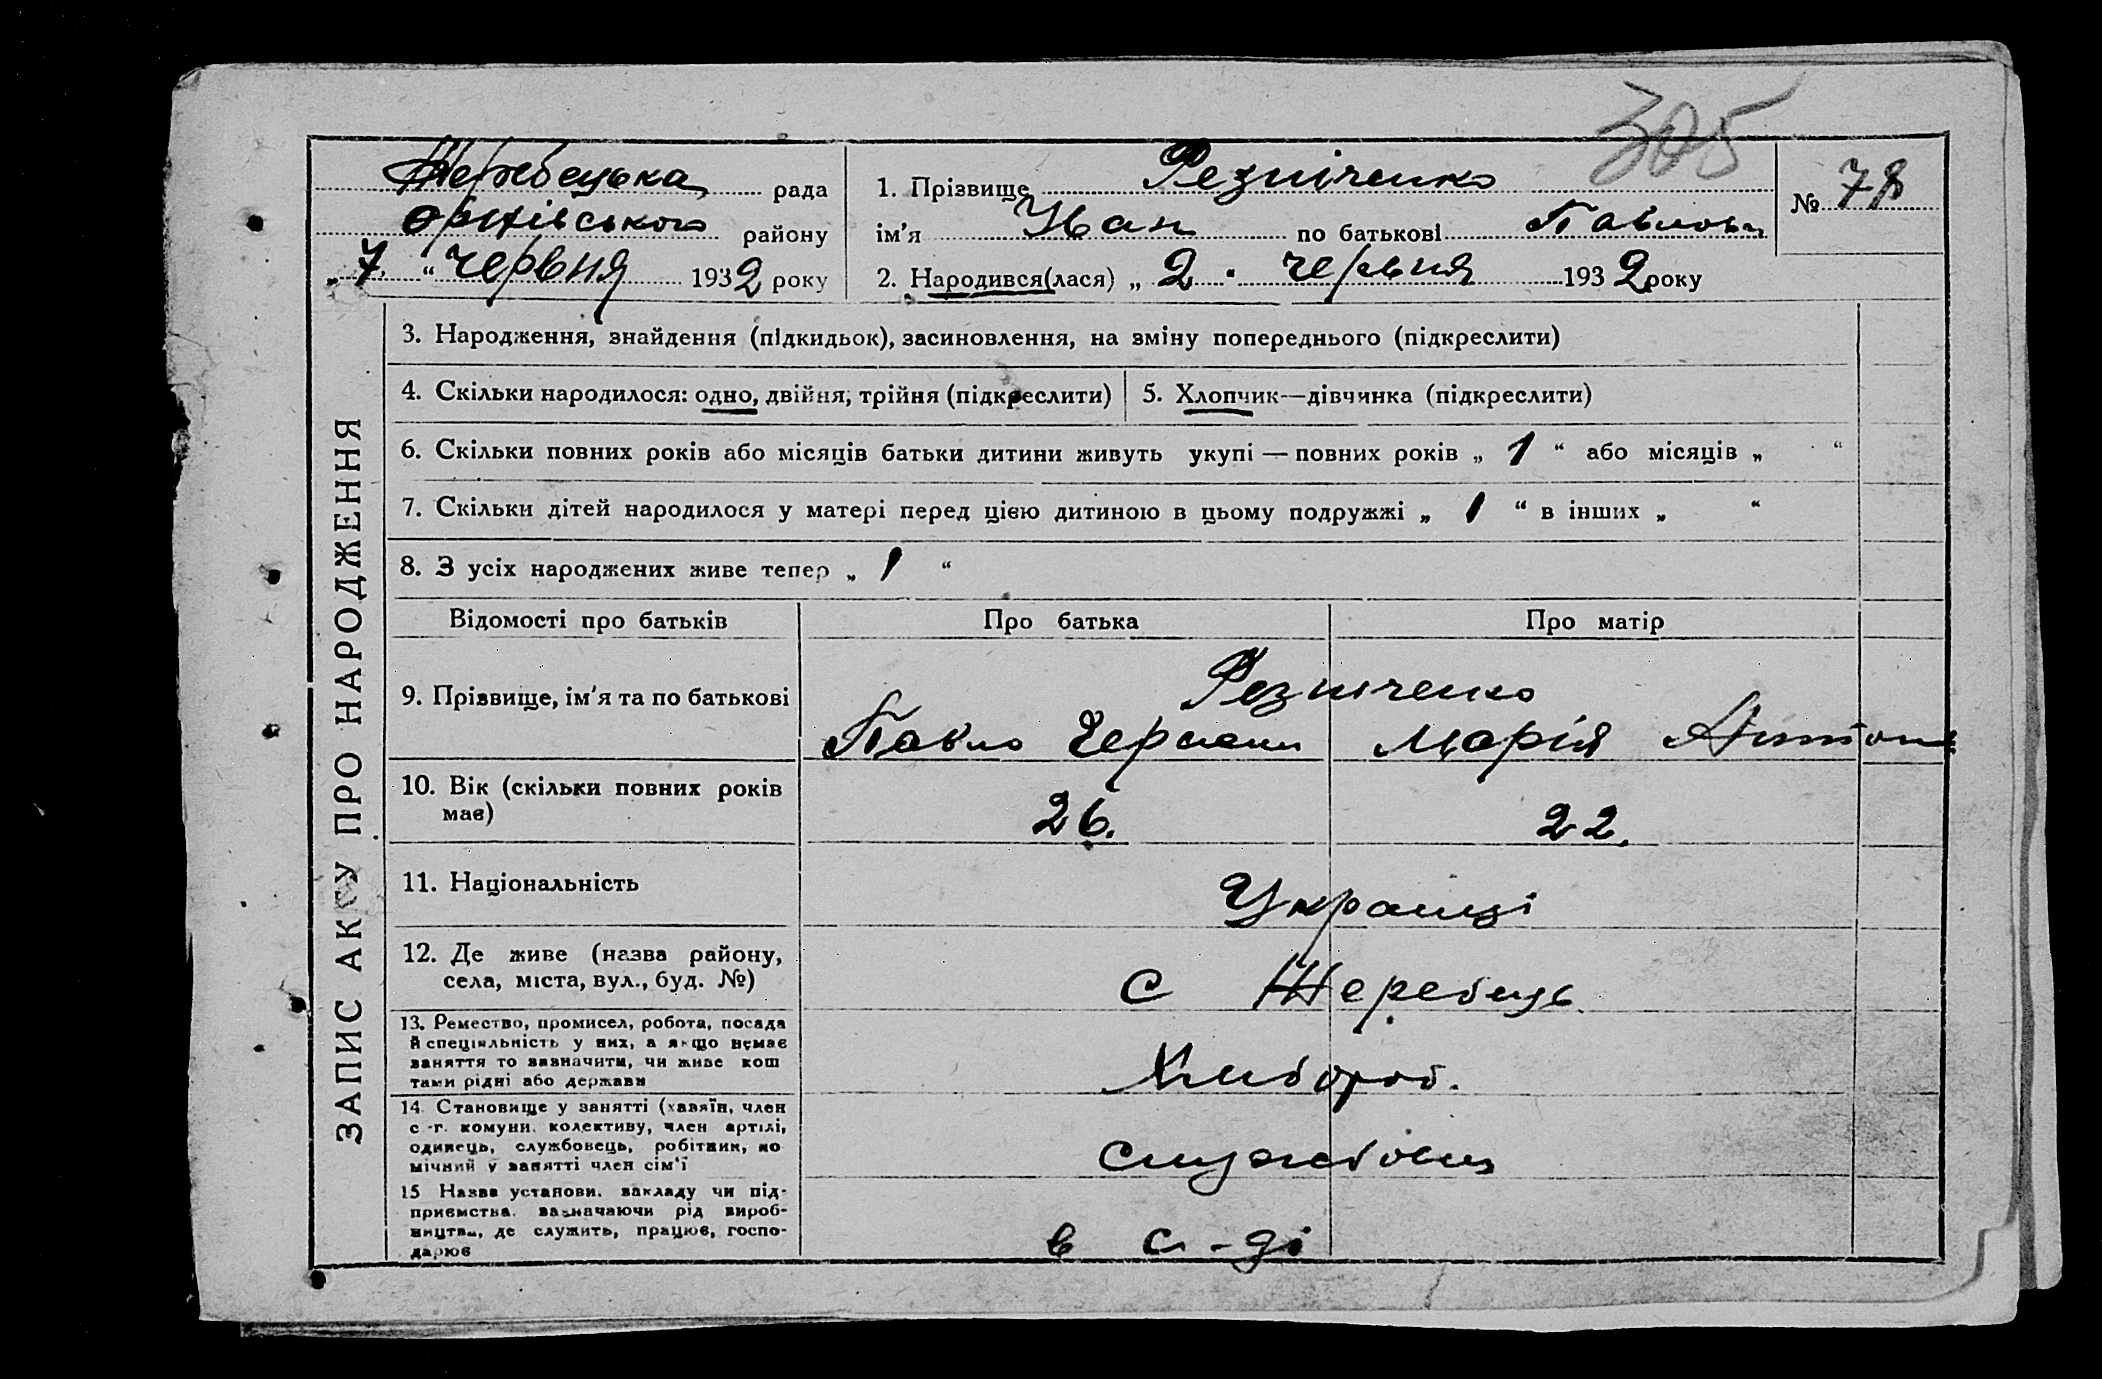 305
Жеребецька рада
Оріхівського району
„ 7 “ червня 1932 року
1. Прізвище Резніченко
ім'я Іван по батькові Павлови
№ 78
2. Народився(лася) „ 2 “ червня 1932 року
ЗАПИС АКТУ ПРО НАРОДЖЕННЯ
3. Народження, знайдення (підкидьок), засиновлення, на зміну попереднього (підкреслити)
4. Скільки народилося: одно, двійня, трійня (підкреслити)
5. Хлопчик—дівчинка (підкреслити)
6. Скільки повних років або місяців батьки дитини живуть укупі — повних років „ 1 “ або місяців „ “
7. Скільки дітей народилося у матері перед цією дитиною в цьому подружжі „ 1 “ в інших „ “
8. З усіх народжених живе тепер „ 1 “
Відомості про батьків
Про батька
Про матір
9. Прізвище, ім'я та по батькові
Резніченко
Павло
Марія Антон
10. Вік (скільки повних років
має)
26.
22.
11. Національність
Українці
12. Де живе (назва району,
села, міста, вул., буд. №)
с Жеребець
13. Ремество, промисел, робота, посада
й спеціяльність у них, а якщо немає
заняття то зазначити, чи живе кош
тами рідні або держави
Хлибороб.
14. Становище у занятті (хазяїн, член
с.-г. комуни, колективу, член артілі,
одинець, службовець, робітник, по
мічний у занятті член сім'ї
службовець
15 Назва установи, закладу чи під-
приємства, зазначаючи рід вироб-
ництва, де служить, працює, госпо-
дарює
в с-ді